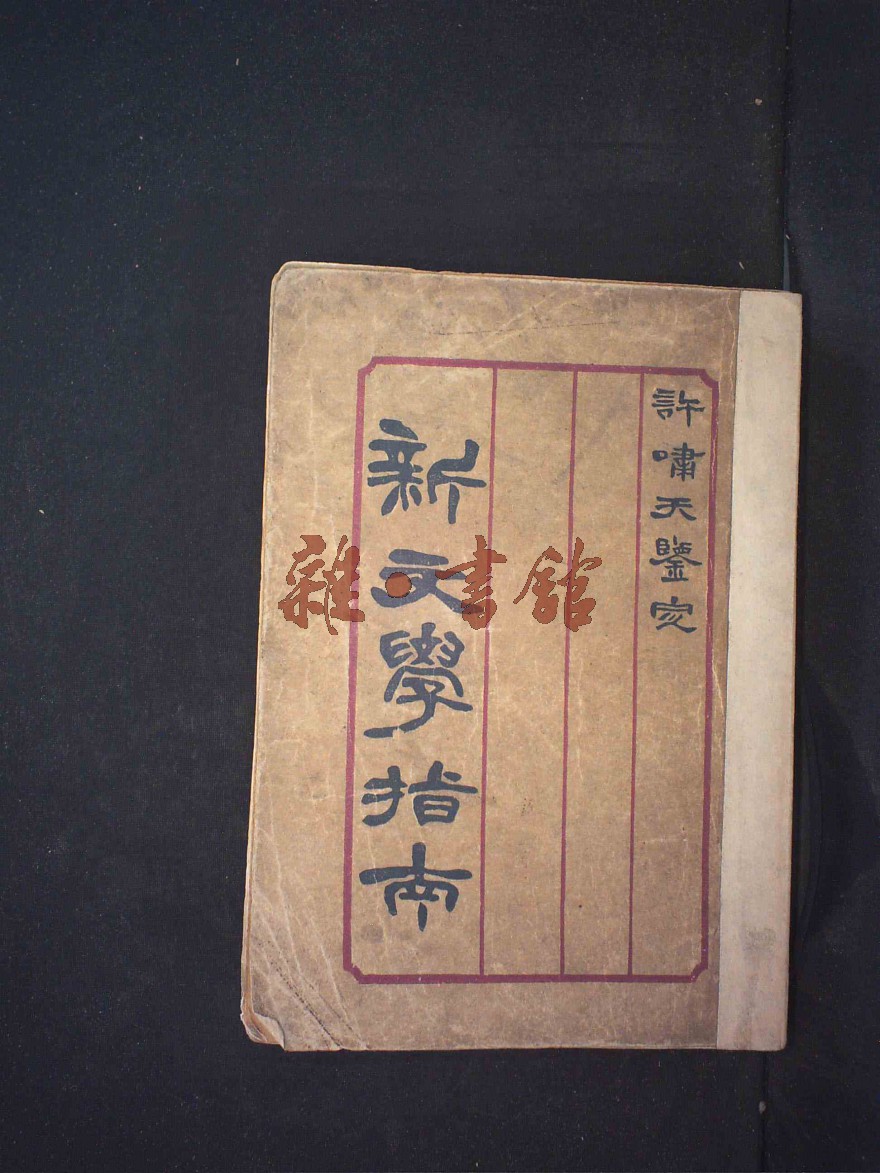 許嘯天鑒定
新文學指南
雜·書館